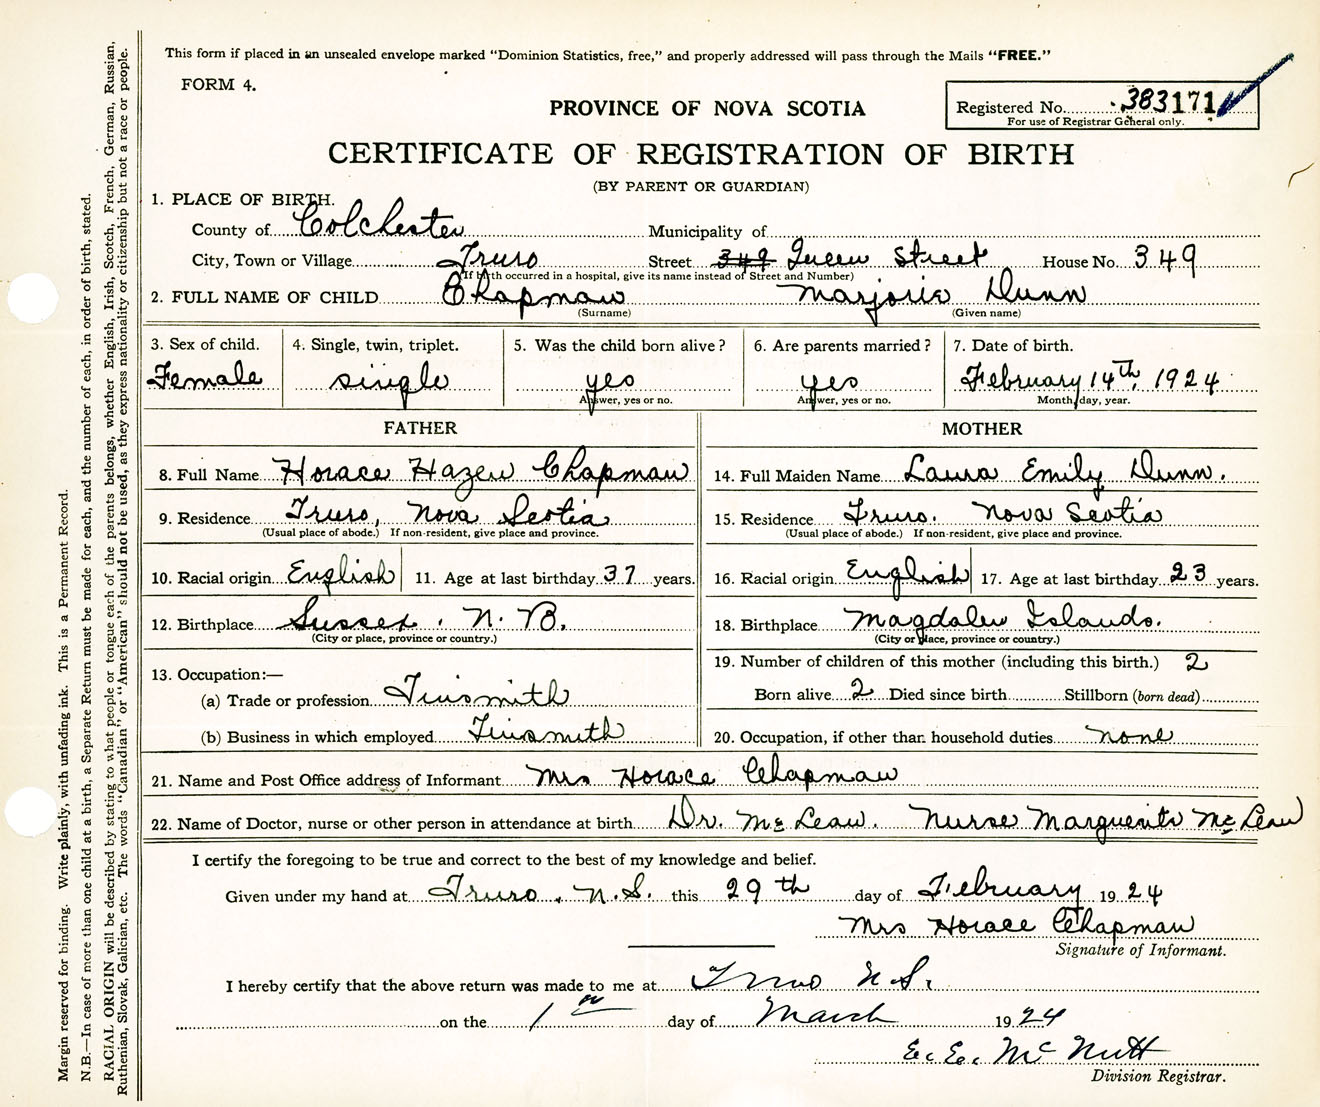 This form if placed in an unsealed envelope marked "Dominion Statistics, free," and properly addressed will pass through the Mails "FREE."
FORM 4.
Registered No. 383171
For use of Registrar General only.
PROVINCE OF NOVA SCOTIA
CERTIFICATE OF REGISTRATION OF BIRTH
(BY PARENT OR GUARDIAN)
1. PLACE OF BIRTH.
County of Colchester Municipality of
City, Town or Village Truro Street 349 Queen Street House No. 349
(If birth occurred in a hospital, give its name instead of Street and Number)
2. FULL NAME OF CHILD Chapman Marjorie Dunn
(Surname) (Given name)
3. Sex of child. 4. Single, twin, triplet. 5. Was the child born alive? 6. Are parents married? 7. Date of birth.
Female single yes yes February 14th, 1924
Answer, yes or no. Answer, yes or no. Month, day, year.
FATHER MOTHER
8. Full Name Horace Hazen Chapman 14. Full Maiden Name Laura Emily Dunn.
9. Residence Truro, Nova Scotia 15. Residence Truro. Nova Scotia
(Usual place of abode.) If non-resident, give place and province. (Usual place of abode.) If non-resident, give place and province.
10. Racial origin English 11. Age at last birthday 37 years. 16. Racial origin English 17. Age at last birthday 23 years.
12. Birthplace Sussex. N. B. 18. Birthplace Magdalen Islands.
(City or place, province or country.) (City or place, province or country.)
13. Occupation:— 19. Number of children of this mother (including this birth.) 2
(a) Trade or profession Tinsmith Born alive 2 Died since birth Stillborn (born dead)
(b) Business in which employed Tinsmith 20. Occupation, if other than household duties none
21. Name and Post Office address of Informant Mrs Horace Chapman
22. Name of Doctor, nurse or other person in attendance at birth Dr. McLean. Nurse Marguerite McLean
I certify the foregoing to be true and correct to the best of my knowledge and belief.
Given under my hand at Truro, N.S. this 29th day of February 1924
Mrs Horace Chapman
Signature of Informant.
I hereby certify that the above return was made to me at Truro N.S.
on the 1st day of March 1924
E. E. McNutt
Division Registrar.
Margin reserved for binding. Write plainly, with unfading ink. This is a Permanent Record.
N.B.—In case of more than one child at a birth, a Separate Return must be made for each, and the number of each, in order of birth, stated.
RACIAL ORIGIN will be described by stating to what people or tongue each of the parents belongs, whether English, Irish, Scotch, French, German, Russian,
Ruthenian, Slovak, Galician, etc. The words "Canadian" or "American" should not be used, as they express nationality or citizenship but not a race or people.